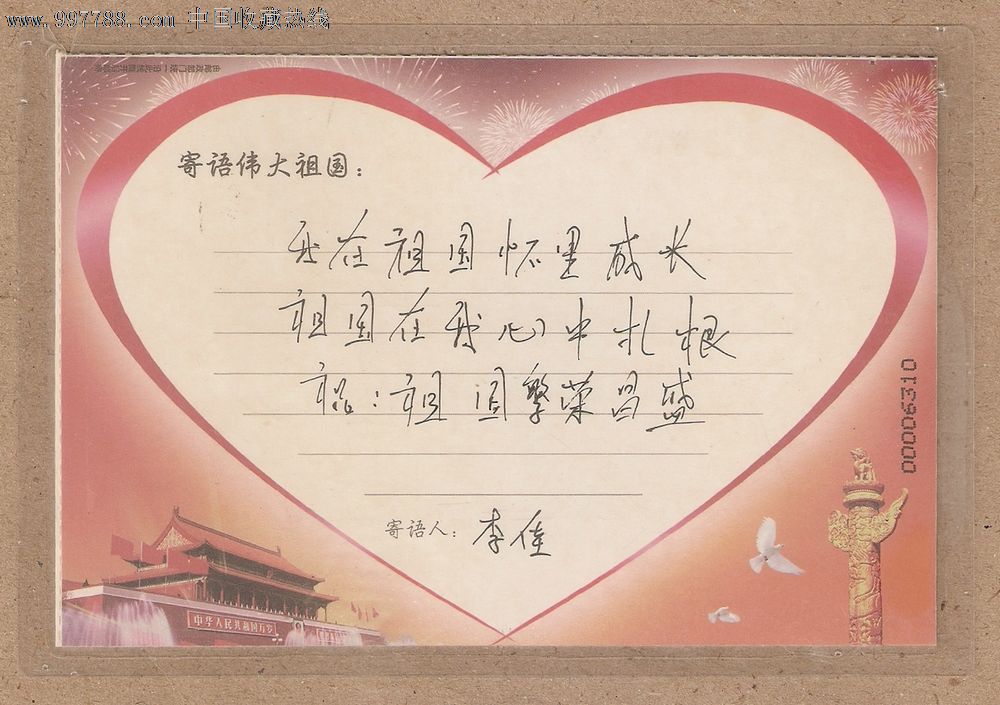 www.997788.com 中国收藏热线
寄语伟大祖国：
我在祖国怀里成长
祖国在我心中扎根
祝：祖国繁荣昌盛
寄语人：李佳
00006310
中华人民共和国万岁